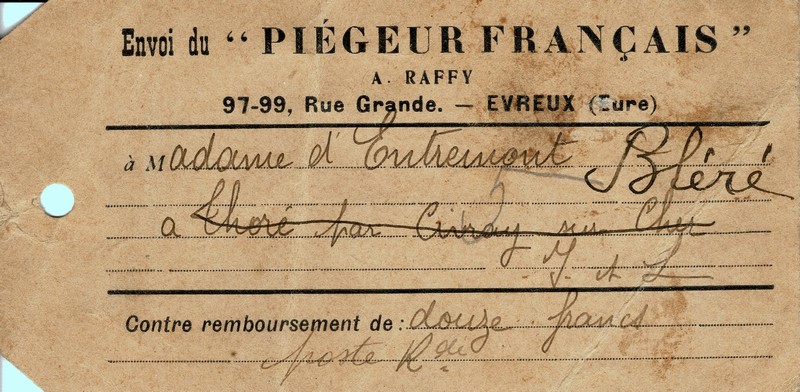 Envoi du “ PIÉGEUR FRANÇAIS ”
A. RAFFY
97-99, Rue Grande. — EVREUX (Eure)
à Madame d'Entremont Bléré
a Thoré par Civray sur Cher
I. et L
Contre remboursement de : douze francs
poste Rde